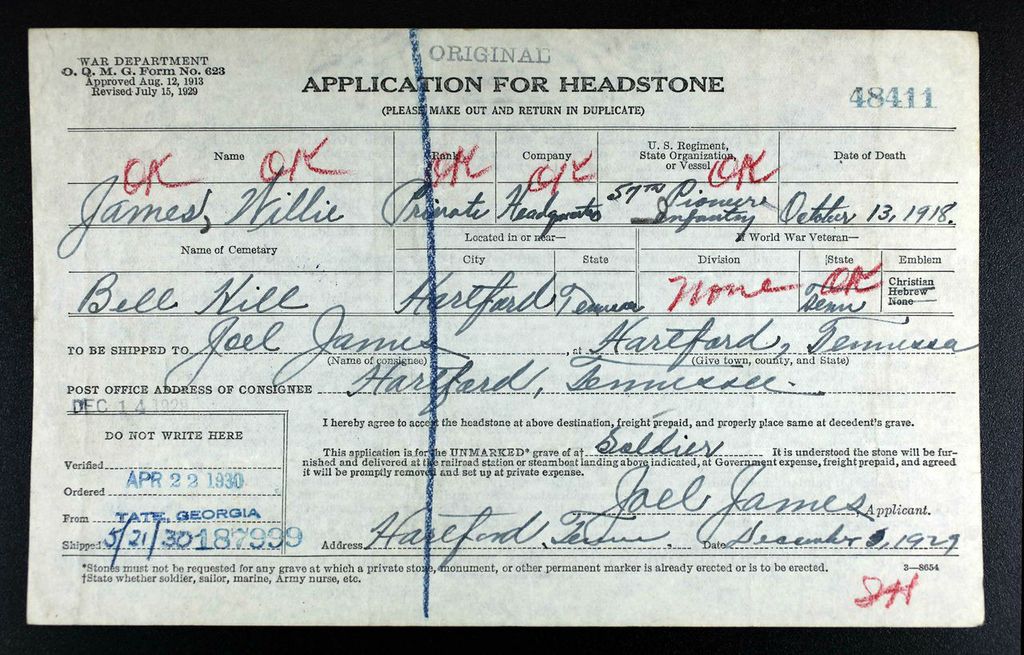 ORIGINAL
WAR DEPARTMENT
O. Q. M. G. Form No. 623
Approved Aug. 12, 1913
Revised July 15, 1929
APPLICATION FOR HEADSTONE
(PLEASE MAKE OUT AND RETURN IN DUPLICATE)
48411
Name Rank Company U. S. Regiment, State Organization, or Vessel Date of Death
OK OK OK OK OK
James, Willie Private Headquarters 57TH Pioneer Infantry October 13, 1918.
Name of Cemetary Located in or near— If World War Veteran—
City State Division State Emblem
Bell Hill Hartford None OK Tenn Christian Hebrew None
TO BE SHIPPED TO Joel James, at Hartford, Tennessa
(Name of consignee) (Give town, county, and State)
POST OFFICE ADDRESS OF CONSIGNEE Hartford, Tennessee.
DEC 14 1929
I hereby agree to accept the headstone at above destination, freight prepaid, and properly place same at decedent's grave.
DO NOT WRITE HERE
This application is for the UNMARKED* grave of a† Soldier It is understood the stone will be fur-
nished and delivered at the railroad station or steamboat landing above indicated, at Government expense, freight prepaid, and agreed
it will be promptly removed and set up at private expense.
Verified
Ordered APR 22 1930
From TATE, GEORGIA
Shipped 5/21/30 187999
Joel James, Applicant.
Address Hartford, Tenn Date December 3, 1929
*Stones must not be requested for any grave at which a private stone, monument, or other permanent marker is already erected or is to be erected.
†State whether soldier, sailor, marine, Army nurse, etc.
3—8654